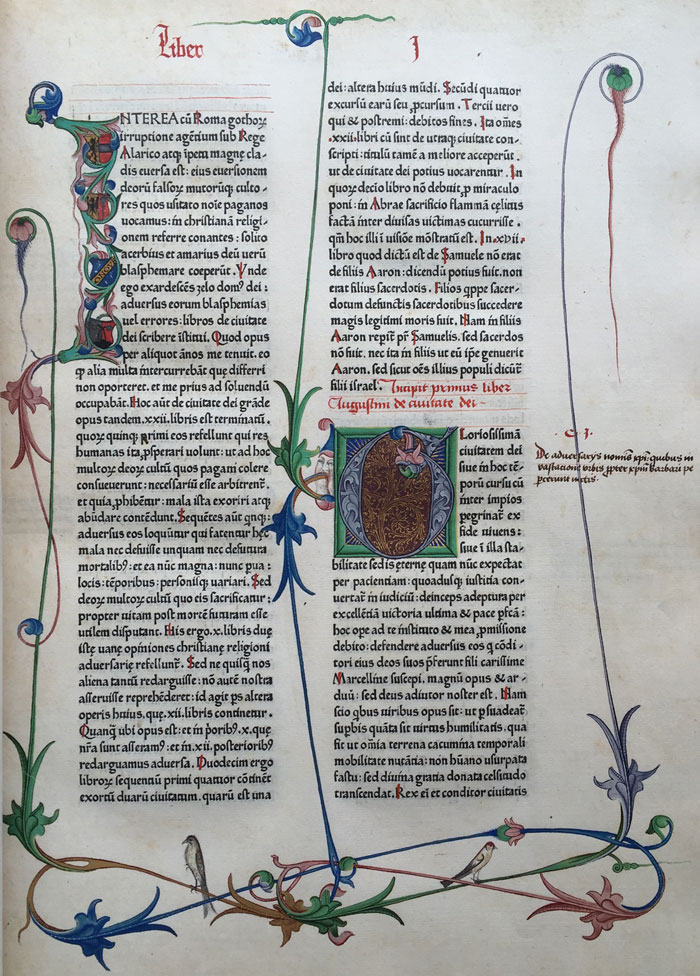 Liber I
INTEREA cũ Roma gothoꝝ
irruptione agẽtium sub Rege
Alarico atqꝫ ĩpetu magnę cla-
dis euersa est: eius euersionem
deorũ falsoꝝ mutorũqꝫ culto-
res quos usitato noĩe paganos
uocamus: in christianã religi-
onem referre conantes: solito
acerbius et amarius deũ uerũ
blasphemare coeperũt. Vnde
ego exardescẽs zelo domꝰ dei:
aduersus eorum blasphemias
uel errores: libros de ciuitate
dei scribere ĩstitui. Quod opus
per aliquot ãnos me tenuit. eo
ꝙ alia multa ĩntercurrebãt quę differri
non oporteret. et me prius ad soluendũ
occupabãt. Hoc aũt de ciuitate dei grãde
opus tandem .xxii. libris est terminatũ.
quoꝝ quinqꝫ primi eos refellunt qui res
humanas ita ꝓsperari uolunt: ut ad hoc
multoꝝ deoꝝ cultũ quos pagani colere
consueuerunt: necessariũ esse arbitrent᷑.
et quia ꝓhibẽtur: mala ista exoriri atqꝫ
abũdare contẽdunt. Sequẽtes aũt qnqꝫ:
aduersus eos loquũtur qui fatentur hęc
mala nec defuisse unquam nec defutura
mortalibꝰ: et ea nũc magna: nunc pua:
locis: tẽporibus: personisqꝫ uariari. Sed
deoꝝ multoꝝ cultũ quo eis sacrificatur:
propter uitam post mortẽ futuram esse
utilem disputant. His ergo .x. libris duę
istę uanę opiniones christianę religioni
aduersarię refellunt᷑. Sed ne quisqꝫ nos
aliena tantũ redarguisse: nõ autẽ nostra
asseruisse reprehẽderet: id agit ps altera
operis huius, quę .xii. libris continetur.
Quanqꝫ ubi opus est: et in p̃orib9 .x. quę
nr̃a sunt asseramꝰ: et in .xii. posteriorib9
redarguamus aduersa. Duodecim ergo
librorꝝ sequentiũ primi quatuor cõtinẽt
exortũ duarũ ciuitatum. quarũ est una
dei: altera huius mũdi. Secũdi quatuor
excursũ earũ seu ꝓcursum. Tercii uero
qui & postremi: debitos fines. Ita om̃es
.xxii. libri cũ sint de utraqꝫ ciuitate con-
scripti: titulũ tamẽ a meliore acceperũt.
ut de ciuitate dei potius uocarentur. In
quoꝝ decio libro nõ debuit, ꝓ miraculo
poni: in Abrae sacrificio flammã cęlitus
factã inter diuisas uictimas cucurrisse.
qm̃ hoc illi ĩ uisiõe mõstratũ est. In .xvii.
libro quod dictũ est de Samuele nõ erat
de filiis Aaron: dicendũ potius fuit. non
erat filius sacerdotis. Filios qꝓpe sacer-
dotum defunctis sacerdotibus succedere
magis legitimi moris fuit. Nam in filiis
Aaron repit᷑ pr̃ Samuelis. sed sacerdos
nõ fuit. nec ita in filiis ut eũ ip̃e genuerit
Aaron. sed sicut oẽs illius populi dicũt᷑
filii israel. Incipit primus liber
Augustini de ciuitate dei.
GLoriosissimã
ciuitatem dei
siue in hoc tẽ-
porũ cursu cũ
inter impios
peregrinat᷑ ex
fide uiuens:
siue ĩ illa sta-
bilitate sedis eternę quam nũc expectat
per pacientiam: quoadusqꝫ iustitia con-
uertat᷑ in iudiciũ: deinceps adeptura per
excellẽtiã uictoria ultima & pace ꝑfcã:
hoc ope ad te instituto & mea ꝓmissione
debito: defendere aduersus eos q cõdi-
tori eius deos suos p̃ferunt fili carissime
Marcelline suscepi. magnũ opus & ar-
duũ: sed deus adiutor noster est. Nam
scio qbus uiribus opus sit: ut ꝑsuadeat᷑
supbis quãta sit uirtus humilitatis. qua
fit ut om̃ia terrena cacumina temporali
mobilitate nutãtia: non hũano usurpata
fastu: sed diuina gratia donata celsitudo
transcendat. Rex eĩ et conditor ciuitatis
C. I.
De aduersarijs nominis xp̃i: quibus in
vastacione vrbis ꝓpter xp̃um barbari pe
percunt